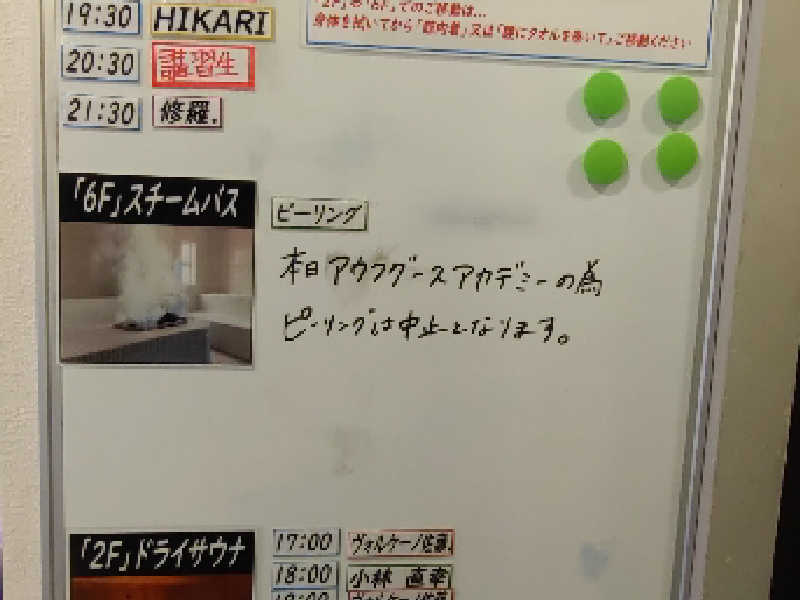 19:30 HIKARI
「2F」⇔「6F」でのご移動は…
身体を拭いてから「館内着」又は「腰にタオルを巻いて」ご移動ください
20:30 講習生
21:30 修羅.
「6F」スチームバス
ピーリング
本日アウフグースアカデミーの為
ピーリングは中止となります。
「2F」ドライサウナ
17:00 ヴォルケーノ佐藤.
18:00 小林 直幸